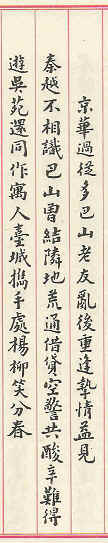 京華過從多巴山老友亂後重逢摯情益見
秦越不相識巴山曾結隣地荒通借貸空警共酸辛難得
遊吳苑還同作寓人臺城攜手處楊柳笑分春